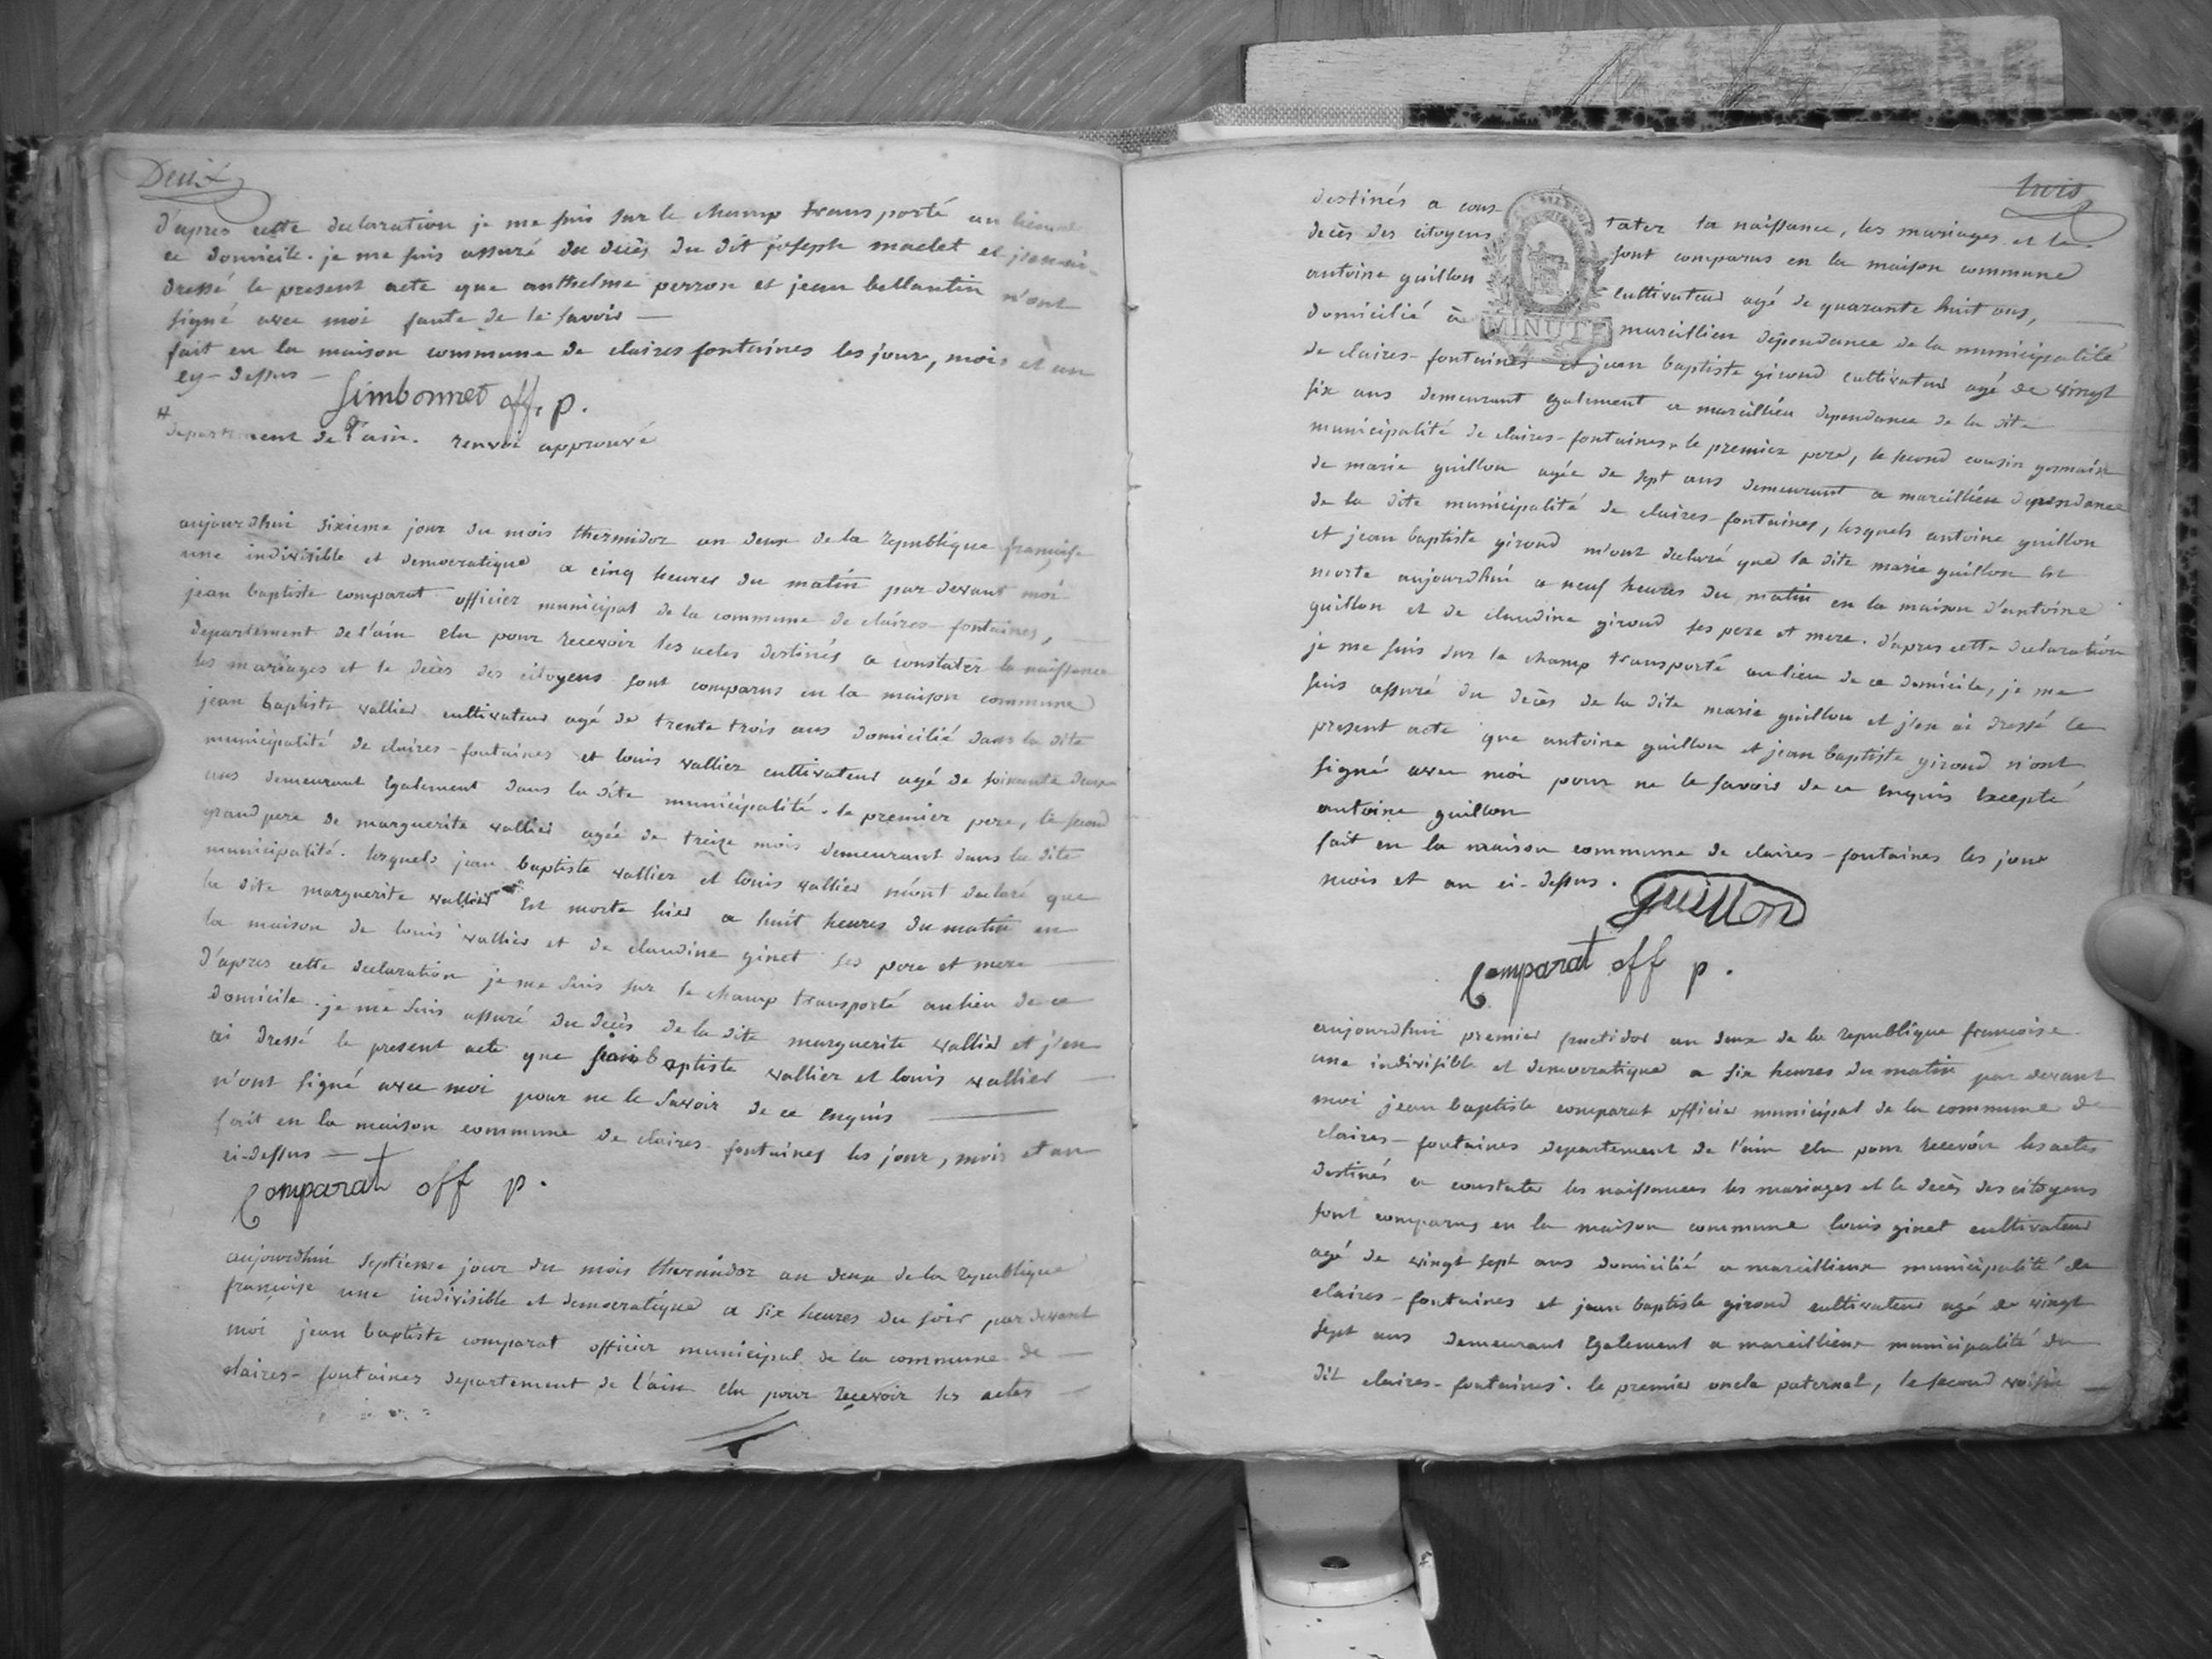 Deux
d'apres cette declaration je me suis sur le champ transporté au lieu de
ce domicile. je me suis assuré du decès du dit joseph maclet et j'en ai
dressé le present acte que anthelme perron et jean ballantin n'ont
signé avec moi faute de le savoir —
fait en la maison commune de claires fontaines les jour, mois et an
cy-dessus —
Simbonnet off. p.
# departement de l'ain. renvoi approuvé
aujourdhui sixieme jour du mois thermidor an deux de la republique françoise
une indivisible et democratique a cinq heures du matin par devant moi
jean baptiste comparat officier municipal de la commune de claires-fontaines,
departement de l'ain elu pour recevoir les actes destinés a constater la naissance
les mariages et le decès des citoyens sont comparus en la maison commune
jean baptiste vallier cultivateur agé de trente trois ans domicilié dans la dite
municipalité de claires-fontaines et louis vallier cultivateur agé de soixante deux
ans demeurant egalement dans la dite municipalité. le premier pere, le second
grand pere de marguerite vallier agée de treize mois demeurant dans la dite
municipalité. lesquels jean baptiste vallier et louis vallier m'ont declaré que
la dite marguerite vallier est morte hier a huit heures du matin en
la maison de louis vallier et de claudine ginet ses pere et mere —
d'apres cette declaration je me suis sur le champ transporté au lieu de ce
domicile. je me suis assuré du decès de la dite marguerite vallier et j'en
ai dressé le present acte que jean baptiste vallier et louis vallier —
n'ont signé avec moi pour ne le savoir de ce enquis —
fait en la maison commune de claires-fontaines les jour, mois et an
ci-dessus —
Comparat off p.
aujourdhui septieme jour du mois thermidor an deux de la republique
françoise une indivisible et democratique a six heures du soir par devant
moi jean baptiste comparat officier municipal de la commune de —
claires-fontaines departement de l'ain elu pour recevoir les actes —
trois
destinés a constater la naissance, les mariages et le
decès des citoyens sont comparus en la maison commune
antoine guillon cultivateur agé de quarante huit ans, —
domicilié à marcillieu dépendance de la municipalité
MINUTE
de claires-fontaines et jean baptiste giroud cultivateur agé de vingt
six ans demeurant egalement a marcillieu dependance de la dite
municipalité de claires-fontaines. le premier pere, le second cousin germain
de marie guillon agée de sept ans demeurant a marcillieu dependance
de la dite municipalité de claires-fontaines, lesquels antoine guillon
et jean baptiste giroud m'ont declaré que la dite marie guillon est
morte aujourdhui a neuf heures du matin en la maison d'antoine
guillon et de claudine giroud ses pere et mere. d'apres cette declaration
je me suis sur le champ transporté au lieu de ce domicile, je me
suis assuré du decès de la dite marie guillon et j'en ai dressé le
present acte que antoine guillon et jean baptiste giroud n'ont
signé avec moi pour ne le savoir de ce enquis excepté
antoine guillon
fait en la maison commune de claires-fontaines les jour
mois et an ci-dessus.
Guillon
Comparat off p.
aujourdhui premier fructidor an deux de la republique francoise
une indivisible et democratique a six heures du matin par devant
moi jean baptiste comparat officier municipal de la commune de
claires-fontaines departement de l'ain elu pour recevoir les actes
destinés a constater les naissances les mariages et le decès des citoyens
sont comparus en la maison commune louis ginet cultivateur
agé de vingt sept ans domicilié a marcillieux municipalité de
claires-fontaines et jean baptiste giroud cultivateur agé de vingt
sept ans demeurant egalement a marcillieux municipalité du
dit claires-fontaines. le premier oncle paternel, le second voisin —